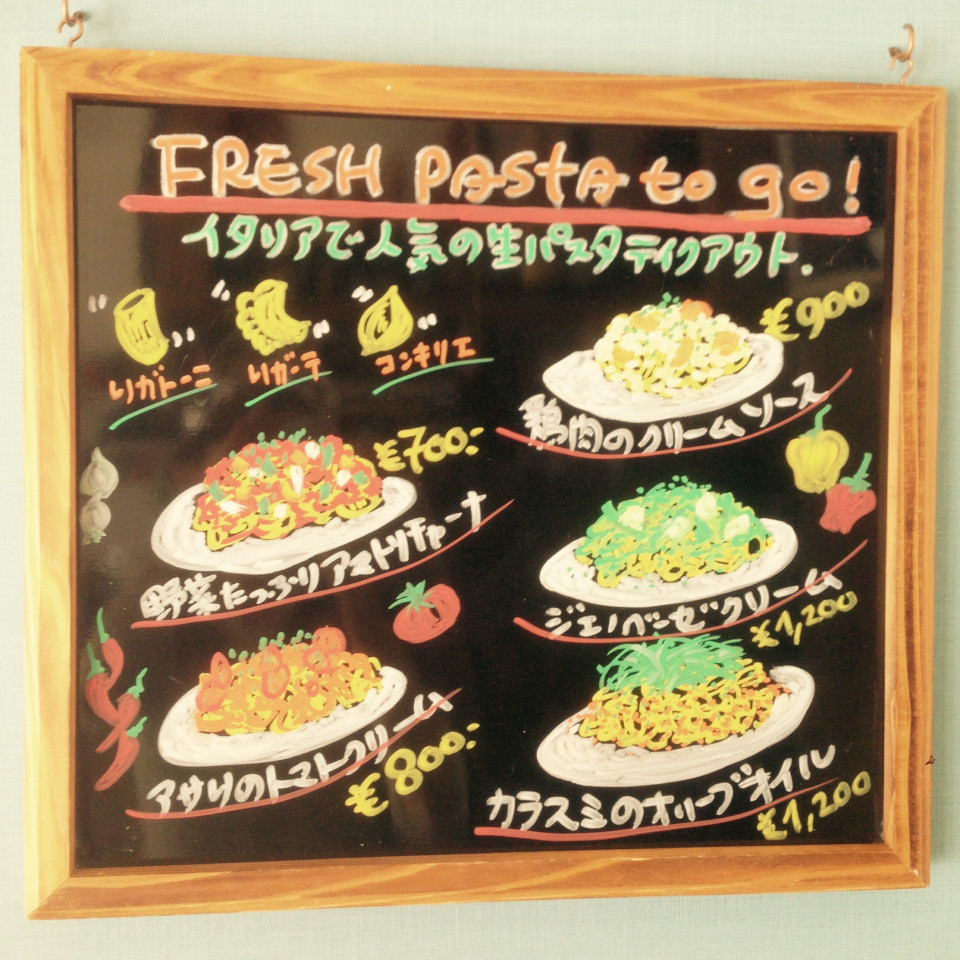 FRESH PASTA to go!
イタリアで人気の生パスタテイクアウト。
リガトーニ
リガーテ
コンキリエ
¥900
鶏肉のクリームソース
¥700-
野菜たっぷりアマトリチャーナ
ジェノベーゼクリーム
¥1,200
アサリのトマトクリーム
¥800-
カラスミのオリーブオイル
¥1,200